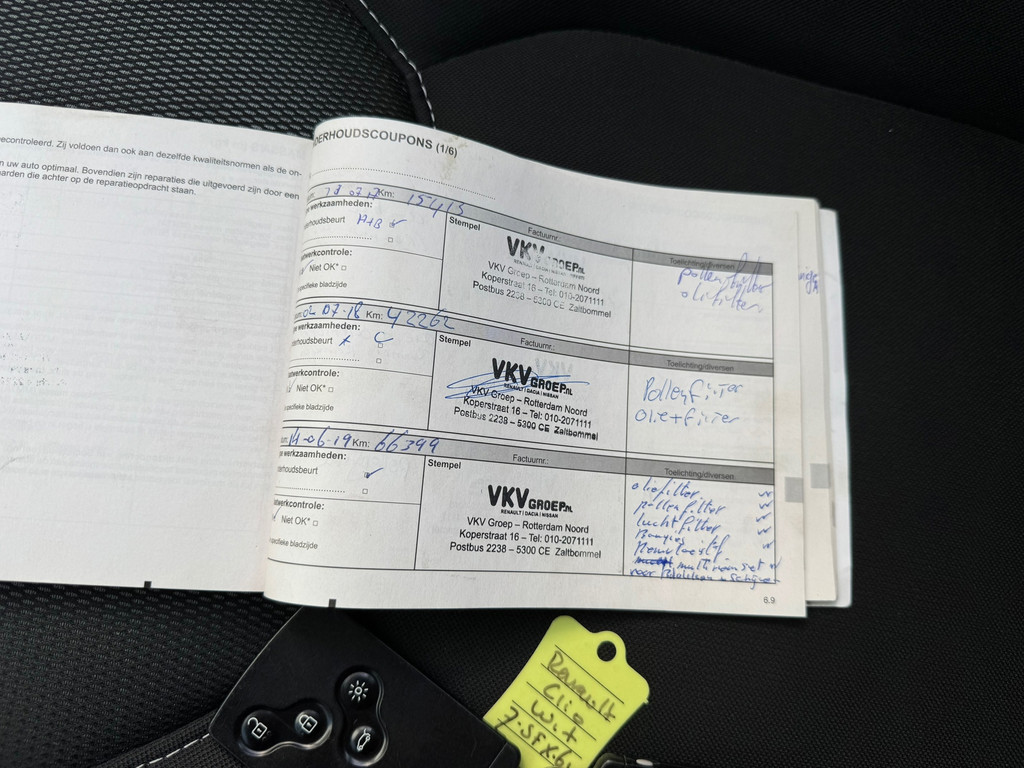 econtroleerd. Zij voldoen dan ook aan dezelfde kwaliteitsnormen als de on-
n uw auto optimaal. Bovendien zijn reparaties die uitgevoerd zijn door een
arden die achter op de reparatieopdracht staan.
DERHOUDSCOUPONS (1/6)
Km: 15413
e werkzaamheden:
erhoudsbeurt A+B
Stempel
Factuurnr.:
Toelichting/diversen
twerkcontrole:
Niet OK*
specifieke bladzijde
VKV GROEP.NL
VKV Groep – Rotterdam Noord
Koperstraat 16 – Tel: 010-2071111
Postbus 2238 – 5300 CE Zaltbommel
pollenfilter
oliefilter
02 07-18 Km: 42262
e werkzaamheden:
erhoudsbeurt C
Stempel
Factuurnr.:
Toelichting/diversen
twerkcontrole:
Niet OK*
specifieke bladzijde
VKV GROEP.NL
RENAULT | DACIA | NISSAN
VKV Groep – Rotterdam Noord
Koperstraat 16 – Tel: 010-2071111
Postbus 2238 – 5300 CE Zaltbommel
Pollenfilter
Olie+filter
14-06-19 Km: 66399
e werkzaamheden:
erhoudsbeurt
Stempel
Factuurnr.:
Toelichting/diversen
twerkcontrole:
Niet OK*
specifieke bladzijde
VKV GROEP.NL
RENAULT | DACIA | NISSAN
VKV Groep – Rotterdam Noord
Koperstraat 16 – Tel: 010-2071111
Postbus 2238 – 5300 CE Zaltbommel
oliefilter
pollenfilter
luchtfilter
Bougies
Remvloeistof
multiriemset
6.9
Renault
Clio
Wit
7-SFX-6